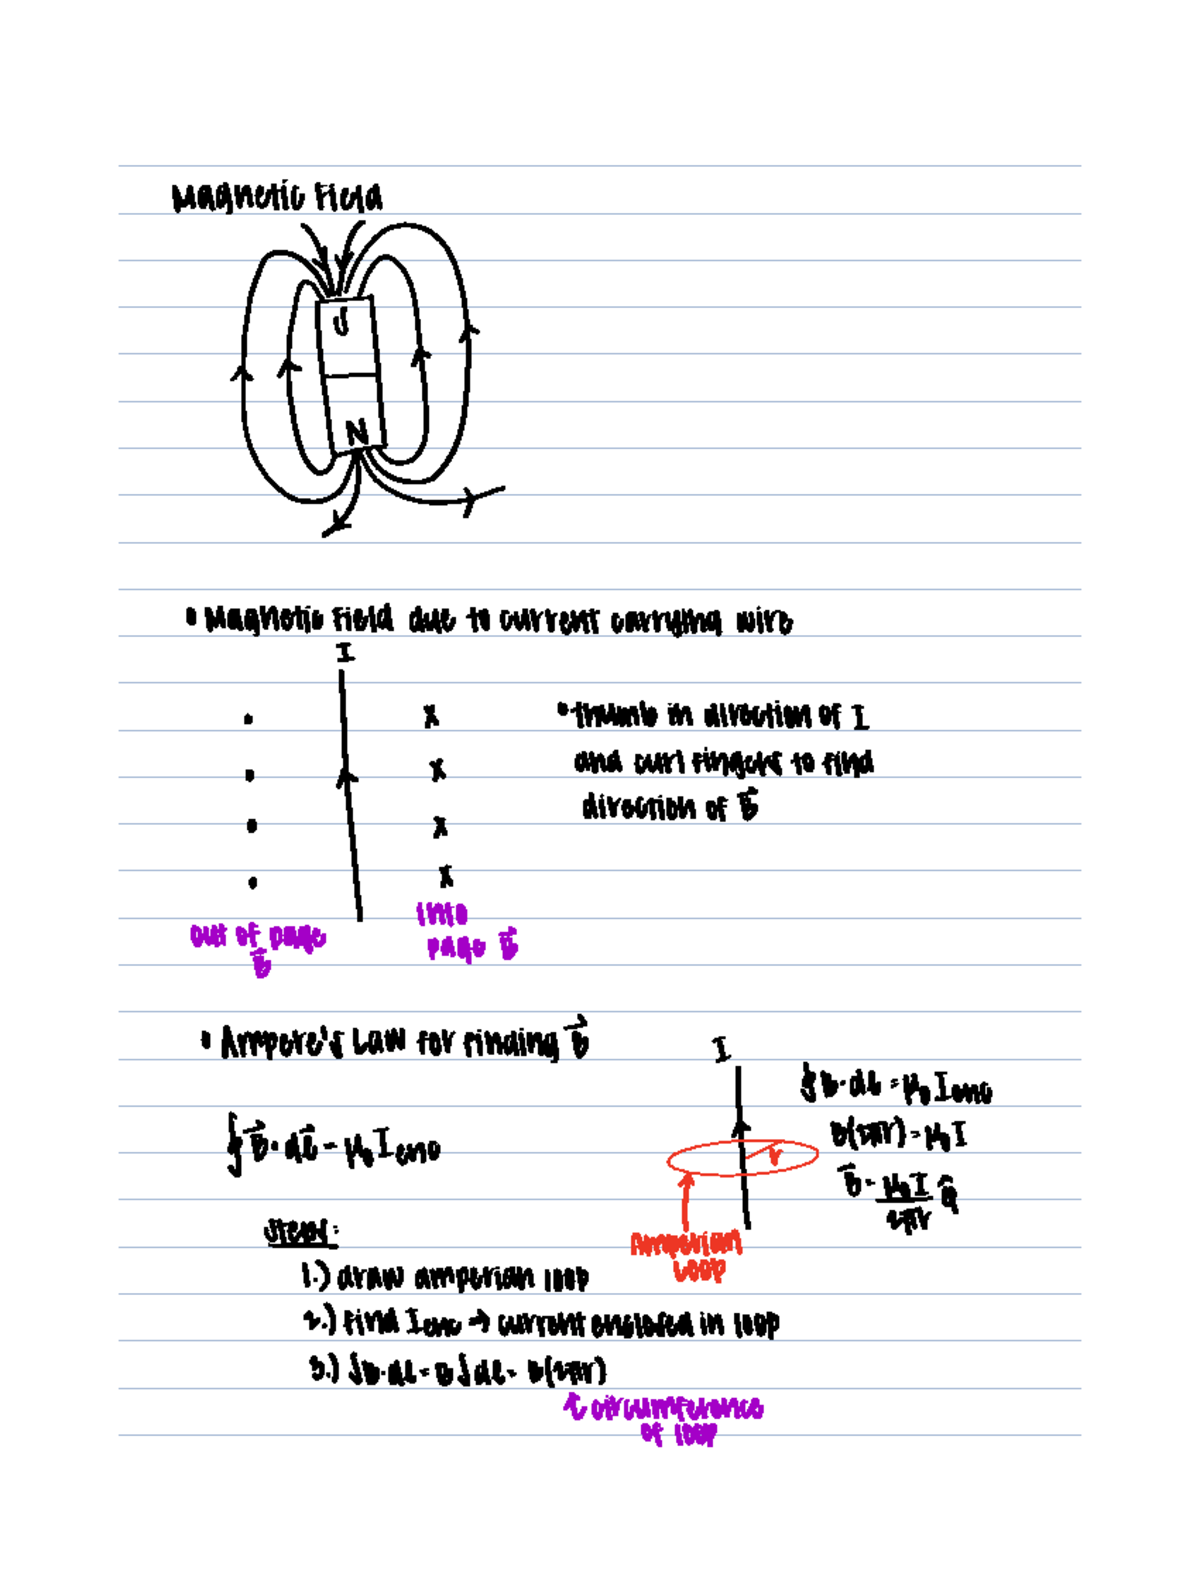 Magnetic Field
S
N
• Magnetic Field due to current carrying wire
I
• x
• x
• x
• x
• thumb in direction of I
and curl fingers to find
direction of B⃗
out of page
B⃗
into
page B⃗
• Ampere's Law for finding B⃗
∮ B⃗ · dl⃗ = μ₀ I enc
I
r
Amperian
Loop
∮ B · dl = μ₀ I enc
B(2πr) = μ₀ I
B⃗ = μ₀ I / 2πr φ̂
Steps:
1.) draw amperian loop
2.) find I enc → current enclosed in loop
3.) ∫B·dl = B∫dl = B(2πr)
↑ circumference
of loop